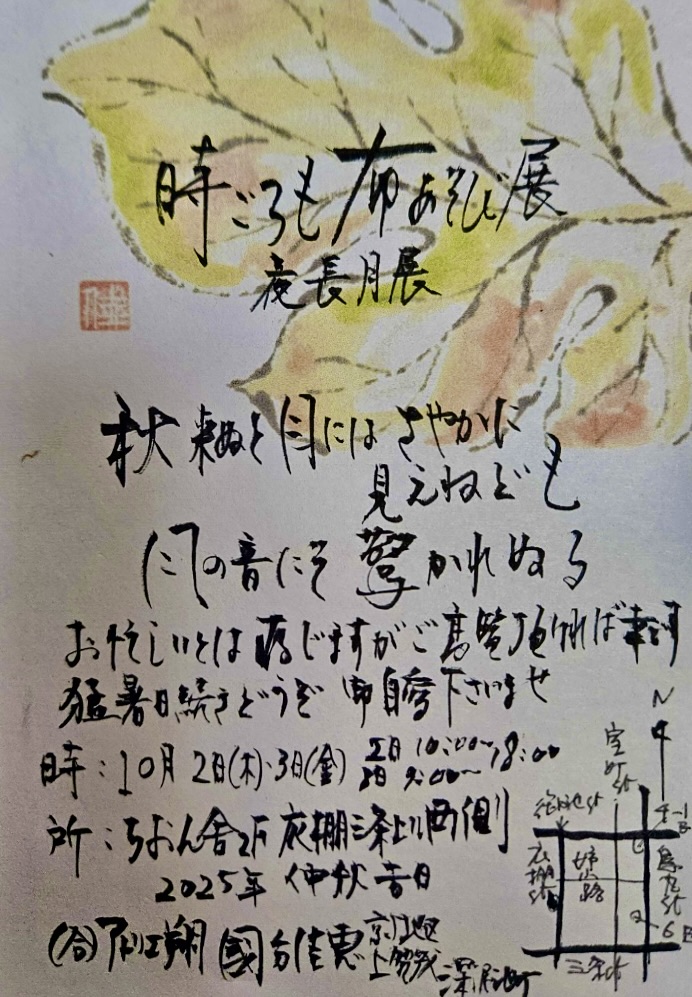 時ごろも布あそび展
夜長月展
秋来ぬと目にはさやかに
見えねども
風の音にぞ驚かれぬる
お忙しいとは存じますがご高覧頂ければ幸です
猛暑日続きどうぞ御自愛下さいませ
時：10月2日(木)・3日(金) 2日10:00〜18:00
3日9:00〜
所：ちおん舎2F 衣棚三条上ル西側
2025年 仲秋吉日
アトリエ朔 國分佳恵
N
室町st
御池st
4-1
衣棚st
姉小路
烏丸st
6
三条st